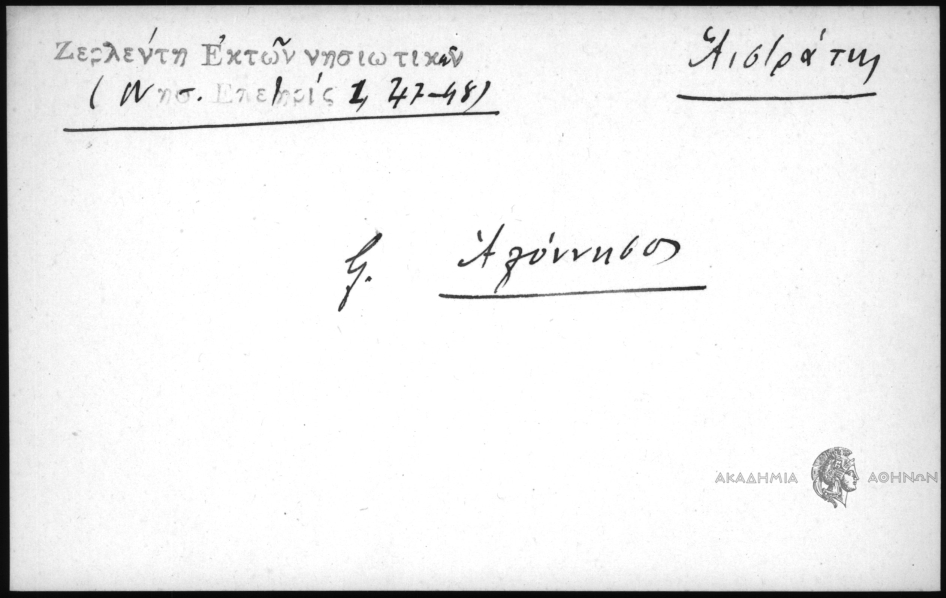 Ζερλέντη Ἐκ τῶν νησιωτικῶν
(Νησ. Ἐπετηρίς 1, 47-48)
Ἀϊστράτης
Ἁλόννησος
ΑΚΑΔΗΜΙΑ ΑΘΗΝΩΝ